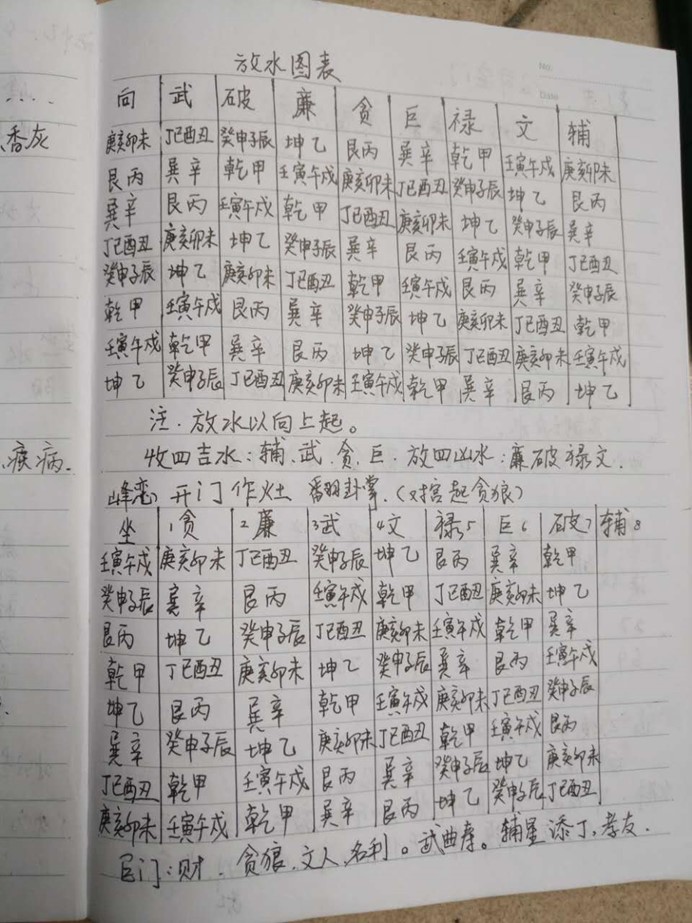 放水图表
向 武 破 廉 贪 巨 禄 文 辅
庚亥卯未 丁巳酉丑 癸申子辰 坤乙 艮丙 巽辛 乾甲 壬寅午戌 庚亥卯未
艮丙 巽辛 乾甲 壬寅午戌 庚亥卯未 丁巳酉丑 癸申子辰 坤乙 艮丙
巽辛 艮丙 壬寅午戌 乾甲 丁巳酉丑 庚亥卯未 坤乙 癸申子辰 巽辛
丁巳酉丑 庚亥卯未 坤乙 癸申子辰 巽辛 艮丙 壬寅午戌 乾甲 丁巳酉丑
癸申子辰 坤乙 庚亥卯未 丁巳酉丑 乾甲 壬寅午戌 艮丙 巽辛 癸申子辰
乾甲 壬寅午戌 艮丙 巽辛 癸申子辰 坤乙 庚亥卯未 丁巳酉丑 乾甲
壬寅午戌 乾甲 巽辛 艮丙 坤乙 癸申子辰 丁巳酉丑 庚亥卯未 壬寅午戌
坤乙 癸申子辰 丁巳酉丑 庚亥卯未 壬寅午戌 乾甲 巽辛 艮丙 坤乙
注.放水以向上起。
收四吉水:辅.武.贪.巨.放四凶水:廉破禄文.
峰峦 开门作灶 翻卦掌.(对宫起贪狼)
坐 1贪 2廉 3武 4文 禄5 巨6 破7 辅8
壬寅午戌 庚亥卯未 丁巳酉丑 癸申子辰 坤乙 艮丙 巽辛 乾甲
癸申子辰 巽辛 艮丙 壬寅午戌 乾甲 丁巳酉丑 庚亥卯未 坤乙
艮丙 坤乙 癸申子辰 丁巳酉丑 庚亥卯未 壬寅午戌 乾甲 巽辛
乾甲 丁巳酉丑 庚亥卯未 坤乙 癸申子辰 巽辛 艮丙 壬寅午戌
坤乙 艮丙 巽辛 乾甲 壬寅午戌 庚亥卯未 丁巳酉丑 癸申子辰
巽辛 癸申子辰 坤乙 庚亥卯未 丁巳酉丑 乾甲 壬寅午戌 艮丙
丁巳酉丑 乾甲 壬寅午戌 艮丙 巽辛 癸申子辰 坤乙 庚亥卯未
庚亥卯未 壬寅午戌 乾甲 巽辛 艮丙 坤乙 癸申子辰 丁巳酉丑
巨门:财.贪狼.文人.名利。武曲寿。辅星添丁,孝友.
香灰
疾病.